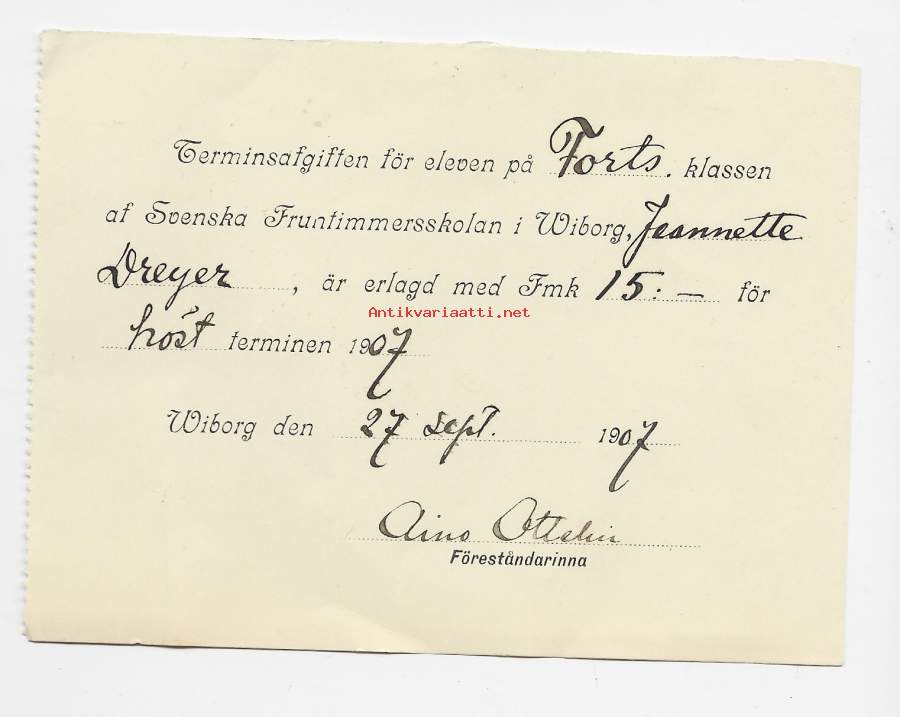 Terminsafgiften för eleven på Forts. klassen
af Svenska Fruntimmersskolan i Wiborg, Jeannette
Dreyer, är erlagd med Fmk 15:— för
Antikvariaatti.net
höst terminen 1907
Wiborg den 27 sept. 1907
Aino Ottelin
Föreståndarinna